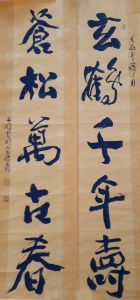 玄鶴千年壽
蒼松萬古春